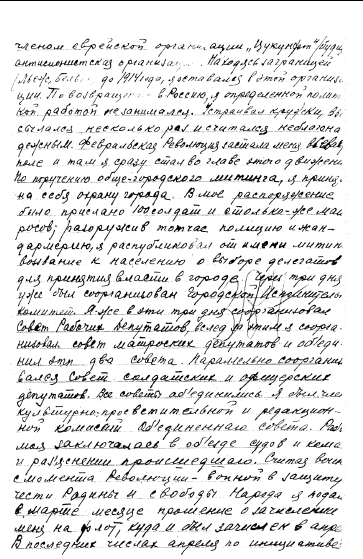 членом еврейской организации „Цукунфт" /будущ
антисионистская организация/. Находясь заграницей
до 1914 года, я оставался в этой организа-
ции. По возвращении в Россию, я определенной полит
кой работой не занимался. Устраивал кружки, вы
сылался несколько раз и считался неблагона
дежным. Февральская Революция застала меня в
поле и там я сразу стал во главе этого движения
По поручению обще-городского митинга, я принял
на себя охрану города. В мое распоряжение
было прислано 100 солдат и столько-же мат
росов; разоружив тотчас полицию и жан-
дармерию, я распубликовал от имени митин
воззвание к населению о выборе делегатов
для принятия власти в городе. Через три дня
уже был соорганизован Городской Исполнитель
комитет. Я же в эти три дня соорганизовал
Совет Рабочих депутатов, вслед этим я соорга-
низовал совет матросских депутатов и объеди-
нил эти два совета. Параллельно соорганизо
вался Совет солдатских и офицерских
депутатов. Все советы объединились. Я был член
культурно-просветительной и редакцион-
ной комиссий объединенного совета. Рабо
моя заключалась в объезде судов и кома
и разъяснении происшедшего. Считая войн
с момента Революции - войной в защиту
чести Родины и свободы Народа я подал
в марте месяце прошение о зачислении
меня на флот, куда и был зачислен в апре
В последних числах апреля по инициативе